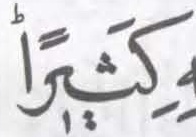 كَثِيرًاؕ